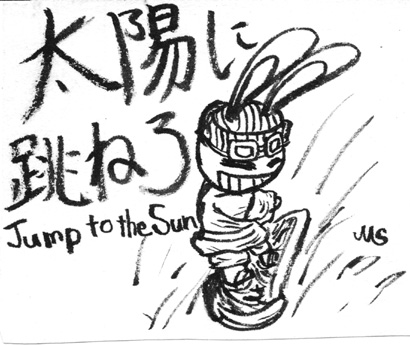 太陽に
跳ねろ
Jump to the Sun
MS